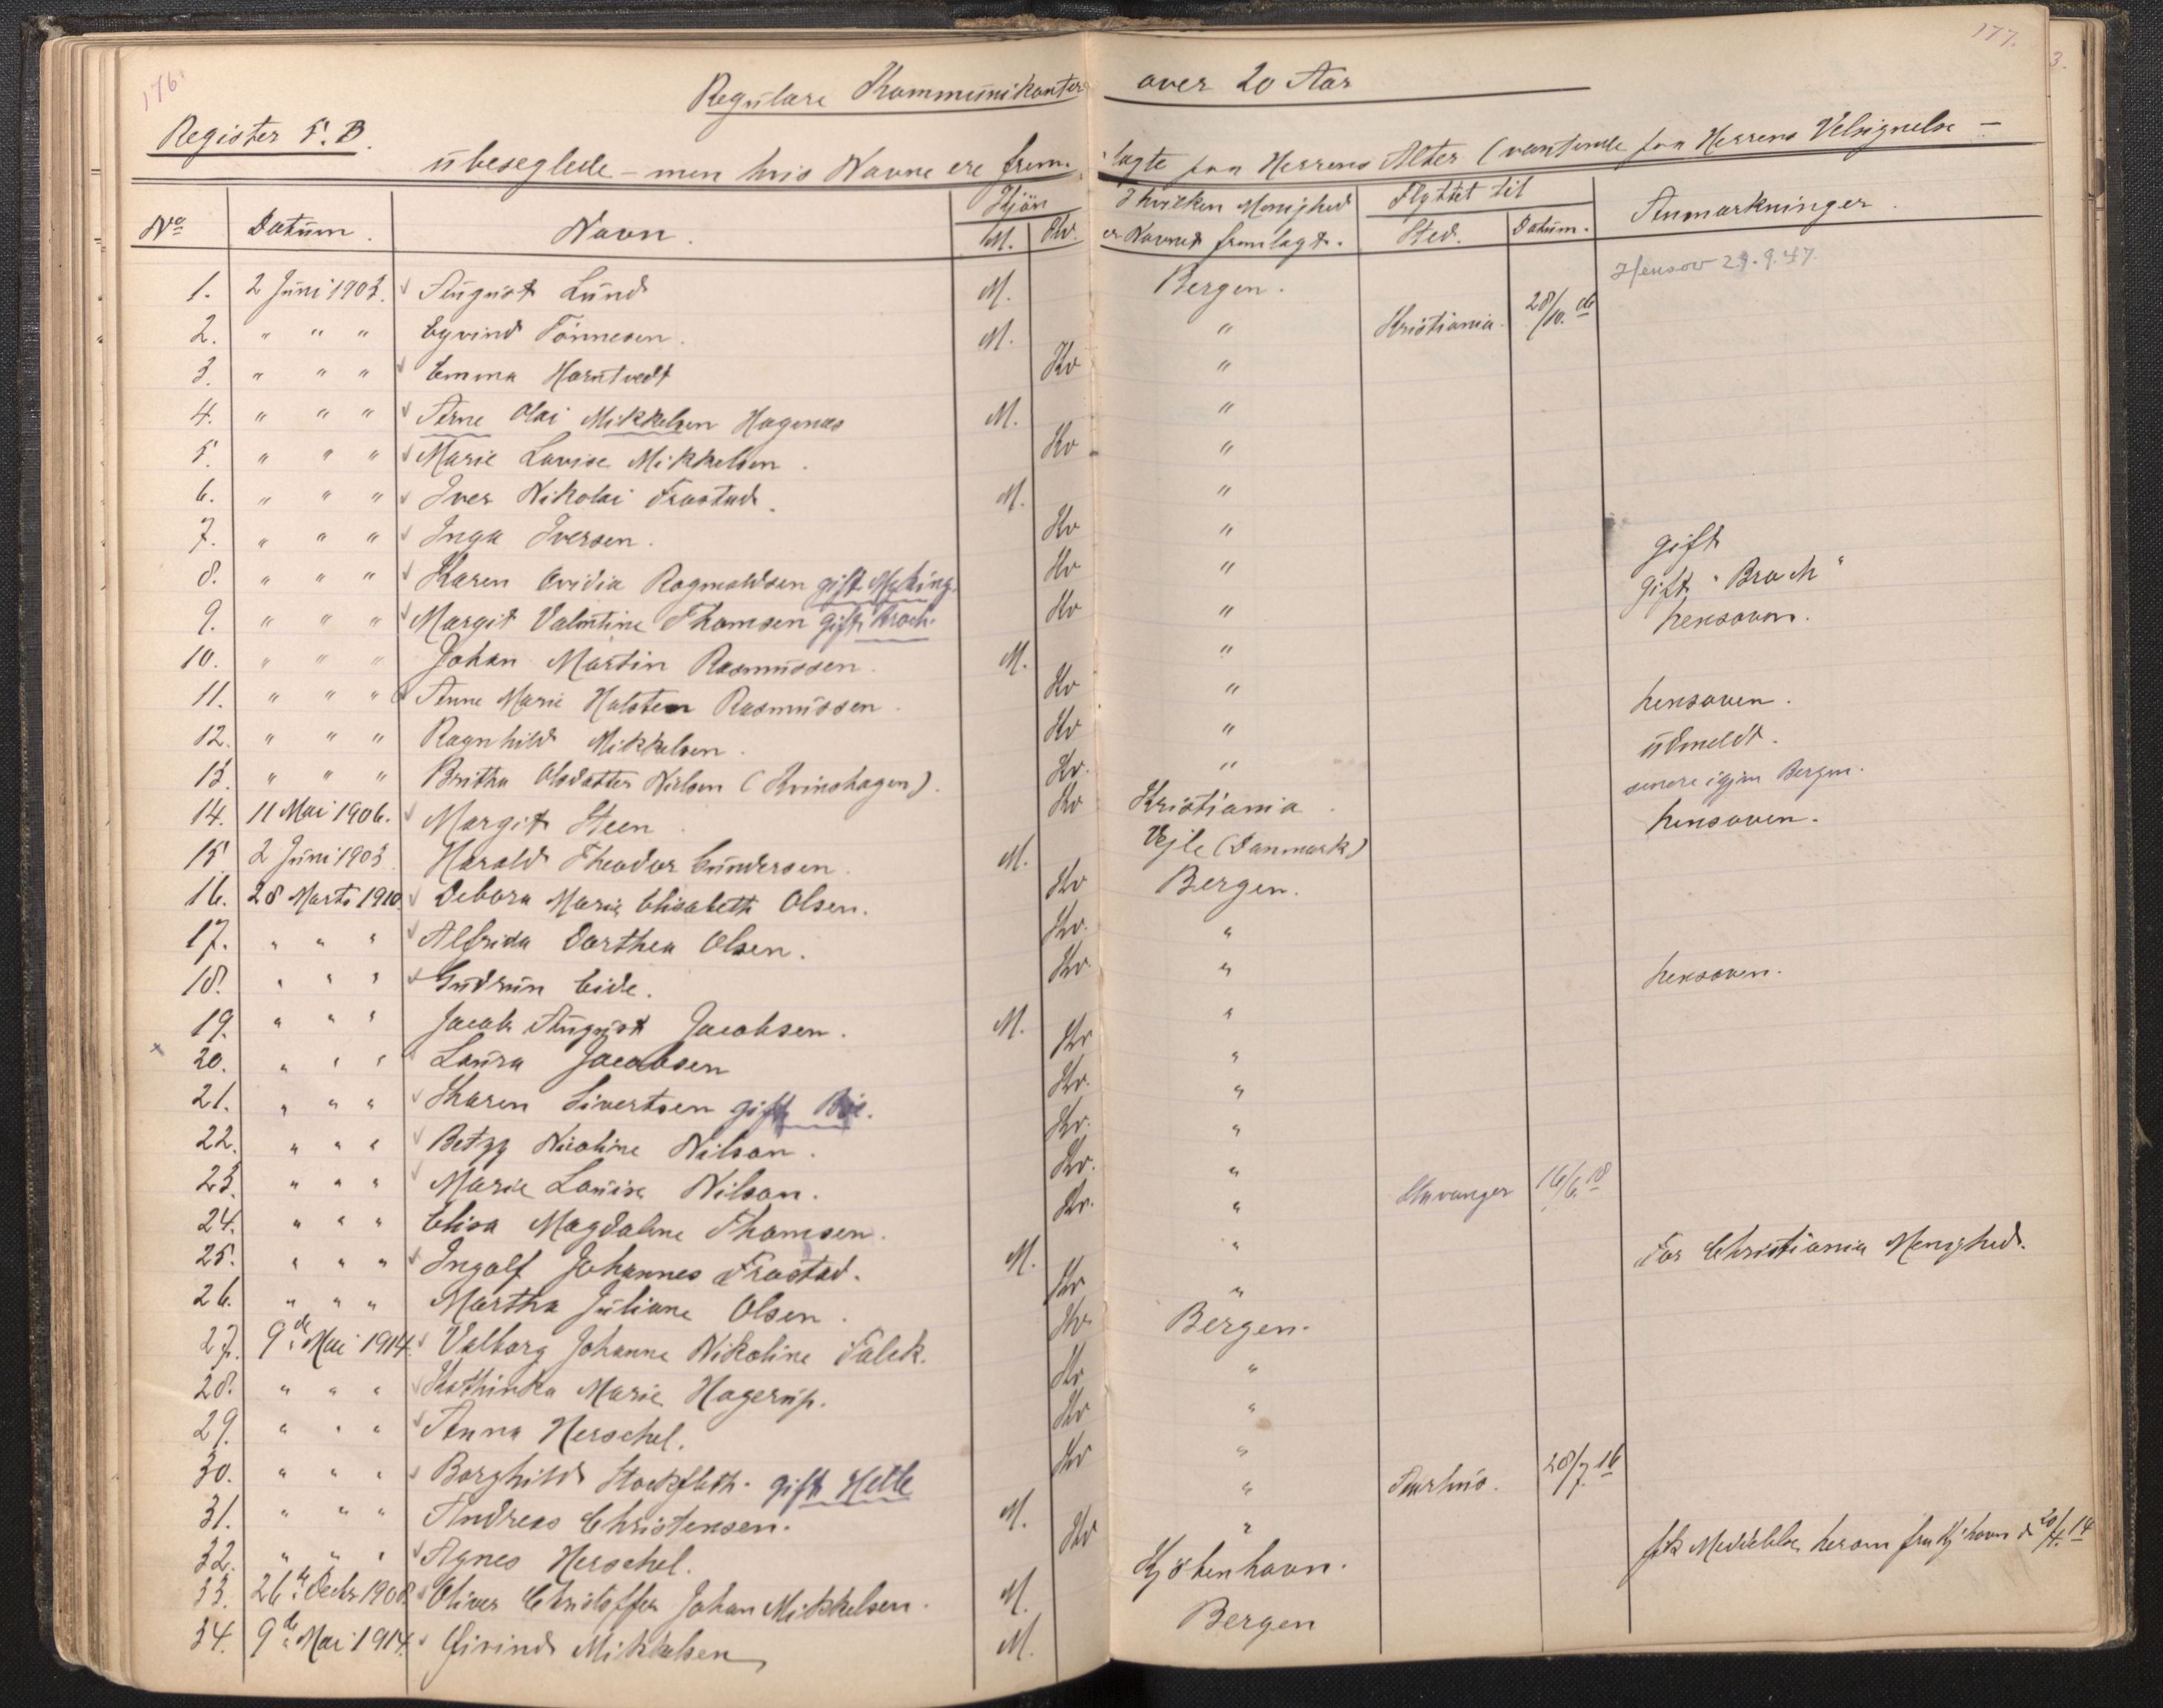 176. 177.
Regulære Kommunikanter over 20 Aar
Register 5. B.
übeseglede – men hvis Navne ere frem- lagte paa Herrens Alter (ventende paa Herrens Velsignelse –
No Datum. Navn. Kjön M. Kv. I hvilken Menighed er Navnet fremlagt. Flyttet til Sted. Datum. Anmærkninger.
1. 2 Juni 1903. August Lund M. Bergen. Hensov 29.9.47.
2. " " " Eyvind Tönnesen. M. " Kristiania. 28/10. 06
3. " " " Emma Horntvedt Kv "
4. " " " Arne Olai Mikkelsen Hagenæs M. "
5. " " " Marie Lovise Mikkelsen. Kv "
6. " " " Iver Nikolai Frostad. M. "
7. " " " Inga Iversen. Kv "
8. " " " Karen Ovidia Ragnvaldsen gift Myking. Kv " gift
9. " " " Margit Valentine Thomsen gift Broch. Kv " gift "Broch"
10. " " " Johan Martin Rasmussen. M. " hensoven.
11. " " " Anne Marie Holsten Rasmussen. Kv "
12. " " " Ragnhild Mikkelsen. Kv " hensoven.
13. " " " Britha Olsdatter Nielsen (Kvinshagen). Kv. " üdmeldt.
14. 11 Mai 1906. Margit Steen. Kv Kristiania. senere igjen Bergen.
15. 2 Juni 1903. Harald Theodor Gundersen. M. Vejle (Danmark) hensoven.
16. 28 Marts 1910. Debora Marie Elisabeth Olsen. Kv Bergen.
17. " " " Alfrida Dorthea Olsen. Kv. "
18. " " " Gudrun Eide. Kv. "
19. " " " Jacob August Jacobsen. M. " hensoven.
x 20. " " " Laura Jacobsen Kv "
21. " " " Karen Sivertsen gift Bøe. Kv. "
22. " " " Betzy Nicoline Nilson. Kv. "
23. " " " Marie Louise Nilson. Kv. "
24. " " " Elisa Magdalene Thomsen. Kv. " Stavanger 16/6. 18
25. " " " Ingolf Johannes Frostad. M. "
26. " " " Martha Juliane Olsen. Kv " For Christiania Menighed.
27. 9de Mai 1914. Valborg Johanne Nikoline Falck. Kv. Bergen.
28. " " " Kathinka Marie Hagerup. Kv "
29. " " " Anna Herschel. Kv "
30. " " " Borghild Stockfleth. gift Helle Kv "
31. " " " Andreas Christensen. M. " Aarhus. 28/7. 16
32. " " " Agnes Herschel. Kv "
33. 26de Decbr 1908. Oliver Christoffer Johan Mikkelsen. M. Kjöbenhavn. fik Meddelelse herom fra Kjhavn d 20/4. 14
34. 9de Mai 1914. Øivind Mikkelsen M. Bergen